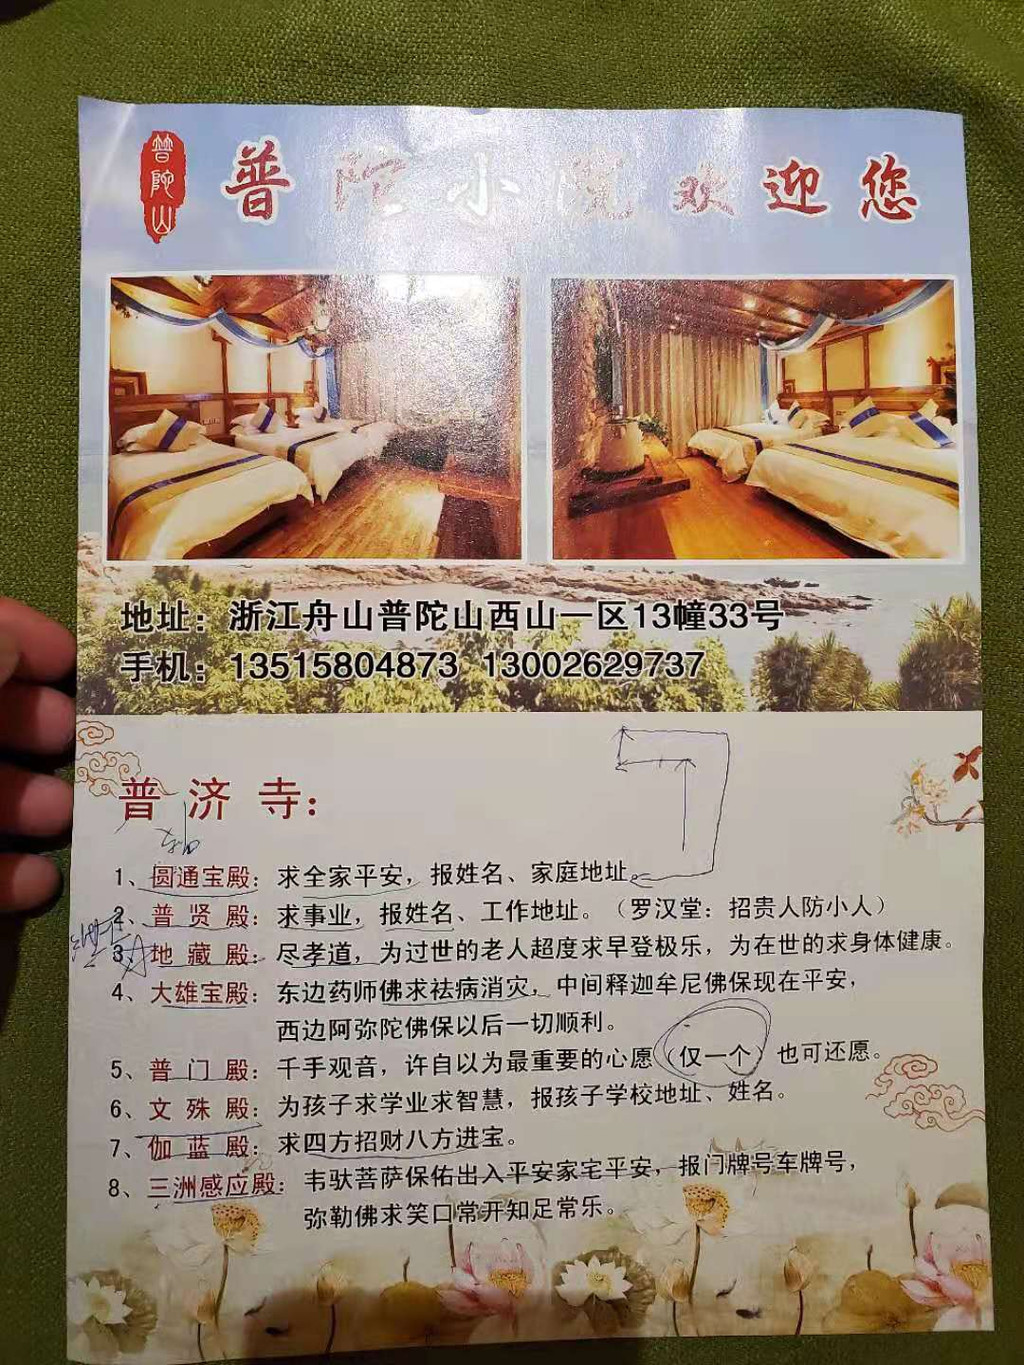 普陀山
普陀小院欢迎您
地址：浙江舟山普陀山西山一区13幢33号
手机：13515804873 13002629737
普济寺：
1、圆通宝殿：求全家平安，报姓名、家庭地址。
2、普贤殿：求事业，报姓名、工作地址。（罗汉堂：招贵人防小人）
3、地藏殿：尽孝道，为过世的老人超度求早登极乐，为在世的求身体健康。
4、大雄宝殿：东边药师佛求祛病消灾，中间释迦牟尼佛保现在平安，
西边阿弥陀佛保以后一切顺利。
5、普门殿：千手观音，许自以为最重要的心愿（仅一个）也可还愿。
6、文殊殿：为孩子求学业求智慧，报孩子学校地址、姓名。
7、伽蓝殿：求四方招财八方进宝。
8、三洲感应殿：韦驮菩萨保佑出入平安家宅平安，报门牌号车牌号，
弥勒佛求笑口常开知足常乐。